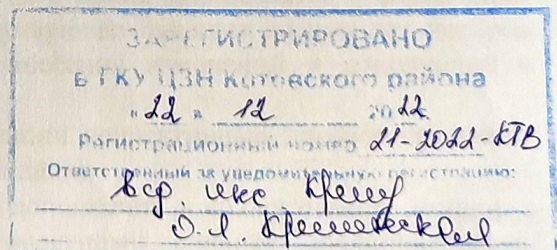 ЗАРЕГИСТРИРОВАНО
в ГКУ ЦЗН Котовского района
"22" 12 2022г.
Регистрационный номер 21-2022-КТВ
Ответственный за уведомительную регистрацию:
вед. инс.
О.Л.